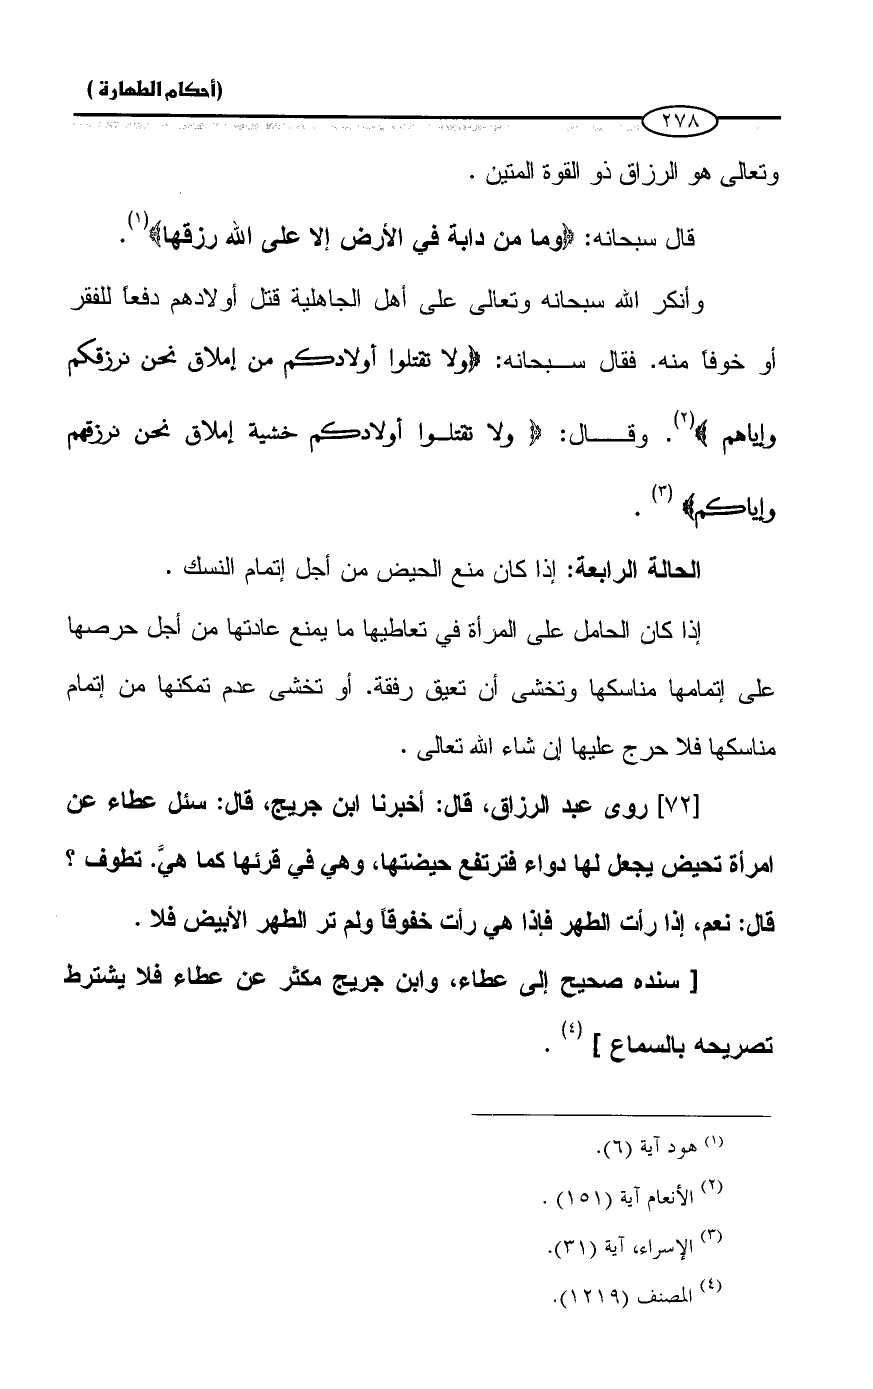 (أحكام الطهارة )
٢٧٨
وتعالى هو الرزاق ذو القوة المتين .
قال سبحانه: ﴿وما من دابة في الأرض إلا على الله رزقها﴾(١).
وأنكر الله سبحانه وتعالى على أهل الجاهلية قتل أولادهم دفعاً للفقر
أو خوفاً منه. فقال سبحانه: ﴿ولا تقتلوا أولادكم من إملاق نحن نرزقكم
وإياهم ﴾(٢). وقال: ﴿ ولا تقتلوا أولادكم خشية إملاق نحن نرزقهم
وإياكم﴾ (٣) .
الحالة الرابعة: إذا كان منع الحيض من أجل إتمام النسك .
إذا كان الحامل على المرأة في تعاطيها ما يمنع عادتها من أجل حرصها
على إتمامها مناسكها وتخشى أن تعيق رفقة. أو تخشى عدم تمكنها من إتمام
مناسكها فلا حرج عليها إن شاء الله تعالى .
[٧٢] روى عبد الرزاق، قال: أخبرنا ابن جريج، قال: سئل عطاء عن
امرأة تحيض يجعل لها دواء فترتفع حيضتها، وهي في قرئها كما هيَّ. تطوف ؟
قال: نعم، إذا رأت الطهر فإذا هي رأت خفوقاً ولم تر الطهر الأبيض فلا .
[ سنده صحيح إلى عطاء، وابن جريج مكثر عن عطاء فلا يشترط
تصريحه بالسماع ] (٤) .
(١) هود آية (٦).
(٢) الأنعام آية (١٥١) .
(٣) الإسراء، آية (٣١).
(٤) المصنف (١٢١٩).